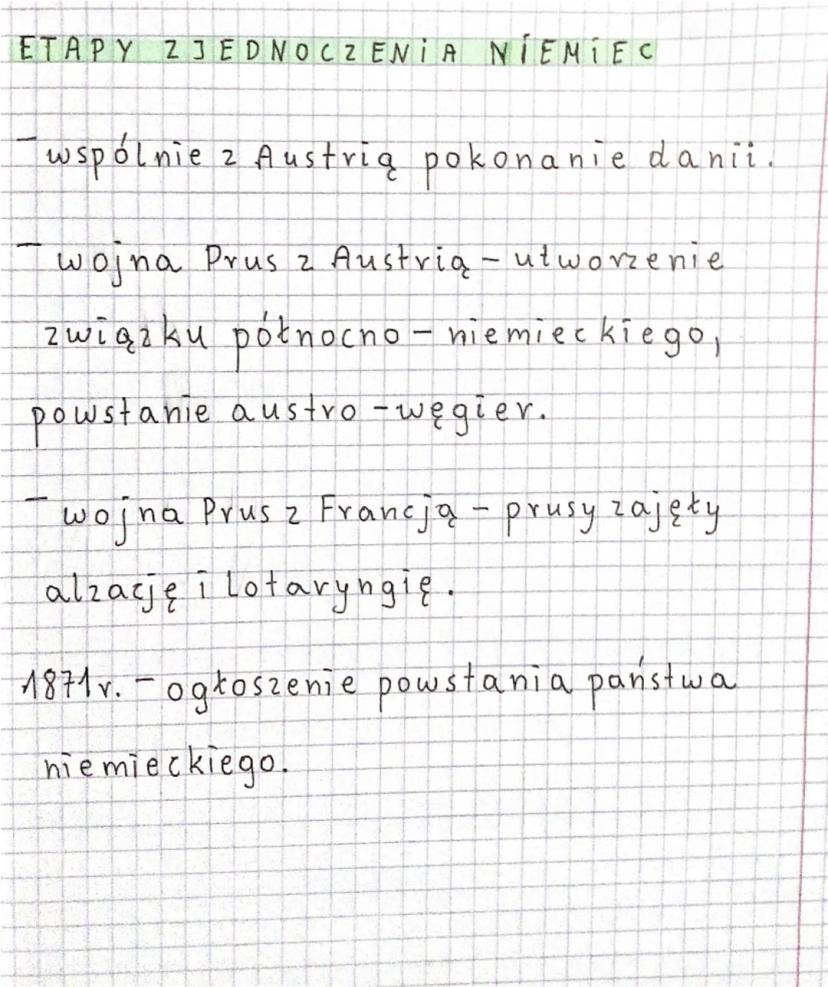 ETAPY ZJEDNOCZENIA NIEMIEC
- wspólnie z Austrią pokonanie danii.
- wojna Prus z Austrią - utworzenie
związku północno - niemieckiego,
powstanie austro - węgier.
- wojna Prus z Francją - prusy zajęły
alzację i Lotaryngię.
1871r. - ogłoszenie powstania państwa
niemieckiego.